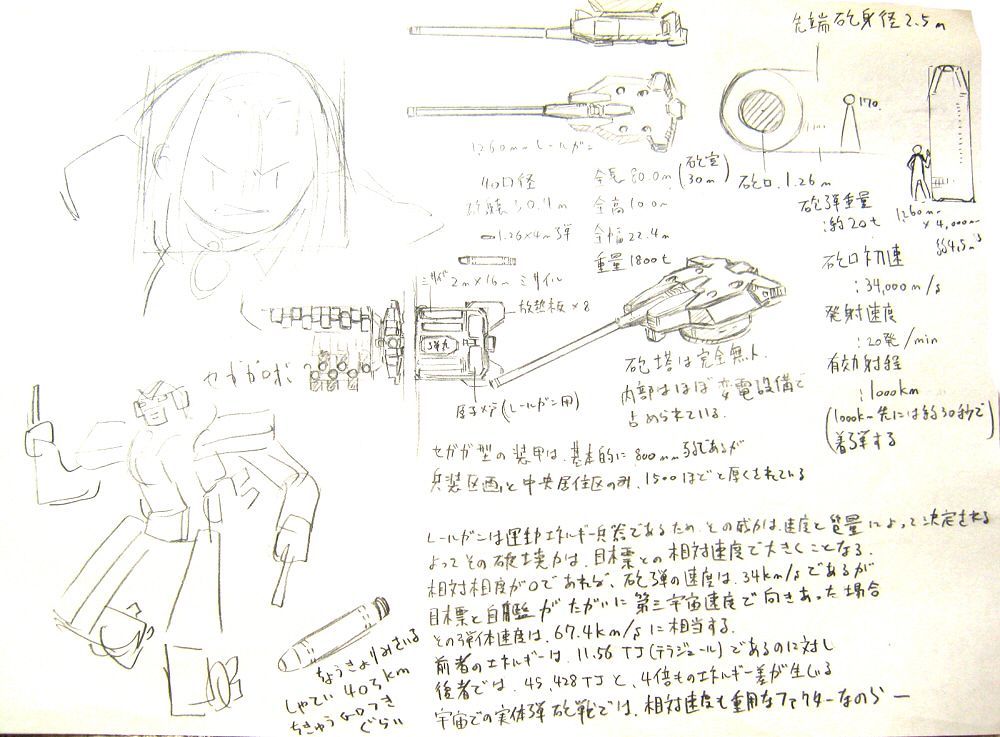 先端砲身径2.5m
170
1260mmレールガン
40口径
砲身長50.4m
1.26×4m弾
全長80.0m(砲室30m)
全高10.0m
全幅22.4m
重量1800t
砲口1.26m
砲弾重量
:約20t
1260mm
×4,000mm
約4.5m³
砲口初速
:34,000m/s
発射速度
:20発/min
有効射程
:1000km
(1000km先には約30秒で
着弾する)
2m×16mミサイル
放熱板×8
弾丸
原子炉(レールガン用)
セガガロボ
砲塔は完全無人
内部はほぼ変電設備で
占められている
セガガ型の装甲は、基本的に800mm弱であるが
兵装区画と中央居住区のみ、1500ほどと厚くされている
レールガンは運動エネルギー兵器であるため、その威力は、速度と質量によって決定される
よってその破壊力は、目標との相対速度で大きくことなる。
相対相度が0であれば、砲弾の速度は、34km/sであるが
目標と自艦がたがいに第三宇宙速度で向きあった場合
その弾体速度は、67.4km/sに相当する。
前者のエネルギーは、11.56TJ(テラジュール)であるのに対し
後者では、45,428TJと、4倍ものエネルギー差が生じる
宇宙での実体弾砲戦では、相対速度も重用なファクターなのらー
ちょうきょりみさいる
しゃてい40万km
ちきゅうから月つき
ぐらい